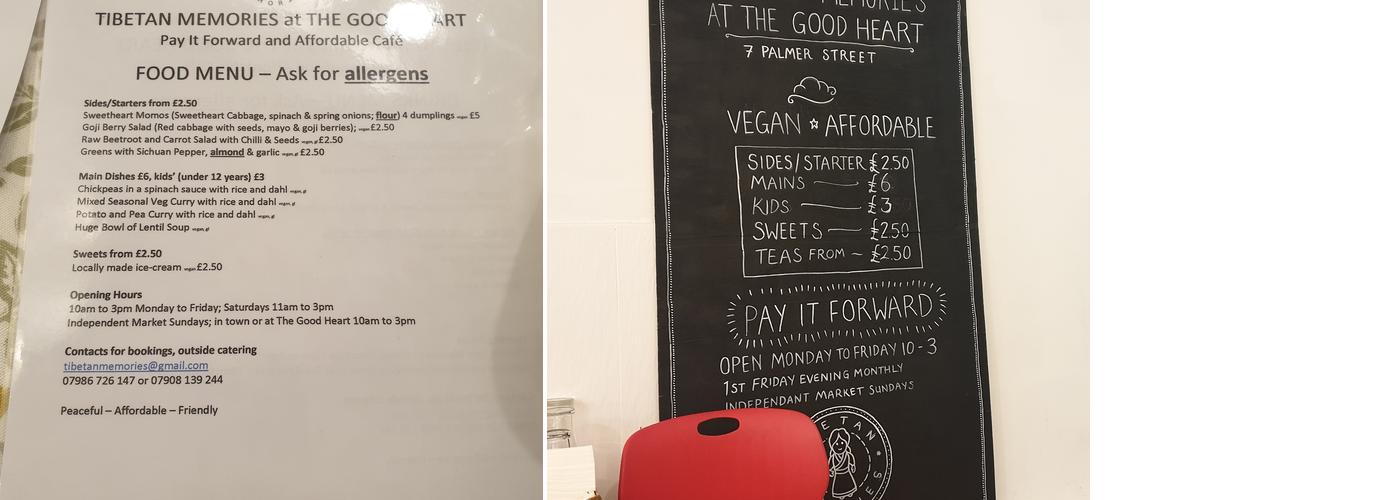 TIBETAN MEMORIES at THE GOOD HEART
Pay It Forward and Affordable Café
FOOD MENU – Ask for allergens
Sides/Starters from £2.50
Sweetheart Momos (Sweetheart Cabbage, spinach & spring onions; flour) 4 dumplings vegan £5
Goji Berry Salad (Red cabbage with seeds, mayo & goji berries); vegan £2.50
Raw Beetroot and Carrot Salad with Chilli & Seeds vegan, gf £2.50
Greens with Sichuan Pepper, almond & garlic vegan, gf £2.50
Main Dishes £6, kids' (under 12 years) £3
Chickpeas in a spinach sauce with rice and dahl vegan, gf
Mixed Seasonal Veg Curry with rice and dahl vegan, gf
Potato and Pea Curry with rice and dahl vegan, gf
Huge Bowl of Lentil Soup vegan, gf
Sweets from £2.50
Locally made ice-cream vegan £2.50
Opening Hours
10am to 3pm Monday to Friday; Saturdays 11am to 3pm
Independent Market Sundays; in town or at The Good Heart 10am to 3pm
Contacts for bookings, outside catering
tibetanmemories@gmail.com
07986 726 147 or 07908 139 244
Peaceful – Affordable – Friendly
MEMORIES
AT THE GOOD HEART
7 PALMER STREET
VEGAN ☆ AFFORDABLE
SIDES/STARTER £2.50
MAINS — £6
KIDS — £3
SWEETS — £2.50
TEAS FROM – £2.50
PAY IT FORWARD
OPEN MONDAY TO FRIDAY 10-3
1ST FRIDAY EVENING MONTHLY
INDEPENDANT MARKET SUNDAYS